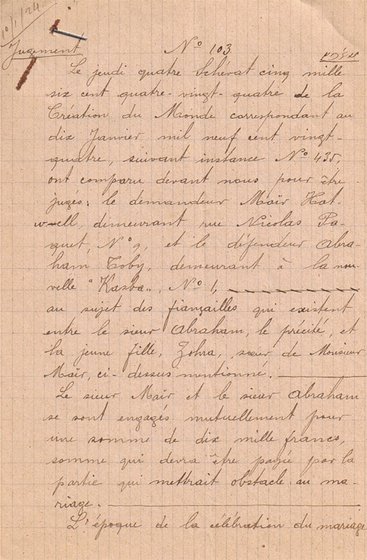 10/1/24
Jugement
N° 103
Le jeudi quatre bchévat cinq mille
six cent quatre-vingt-quatre de la
Création du Monde correspondant au
dix Janvier mil neuf cent vingt-
quatre, suivant instance N° 435,
ont comparu devant nous pour être
jugés: le demandeur Maïr Hat-
well, demeurant rue Nicolas Pa-
quet, N° , et le défendeur Abra-
ham Toby, demeurant à la nou-
velle "Kasba", N° 1,
au sujet des fiançailles qui existent
entre le sieur Abraham, le précité, et
la jeune fille, Zohra, sœur de Monsieur
Maïr, ci-dessus mentionné.
Le sieur Maïr et le sieur Abraham
se sont engagés mutuellement pour
une somme de dix mille francs,
somme qui devra être payée par la
partie qui mettrait obstacle au ma-
riage.
L'époque de la célébration du mariage